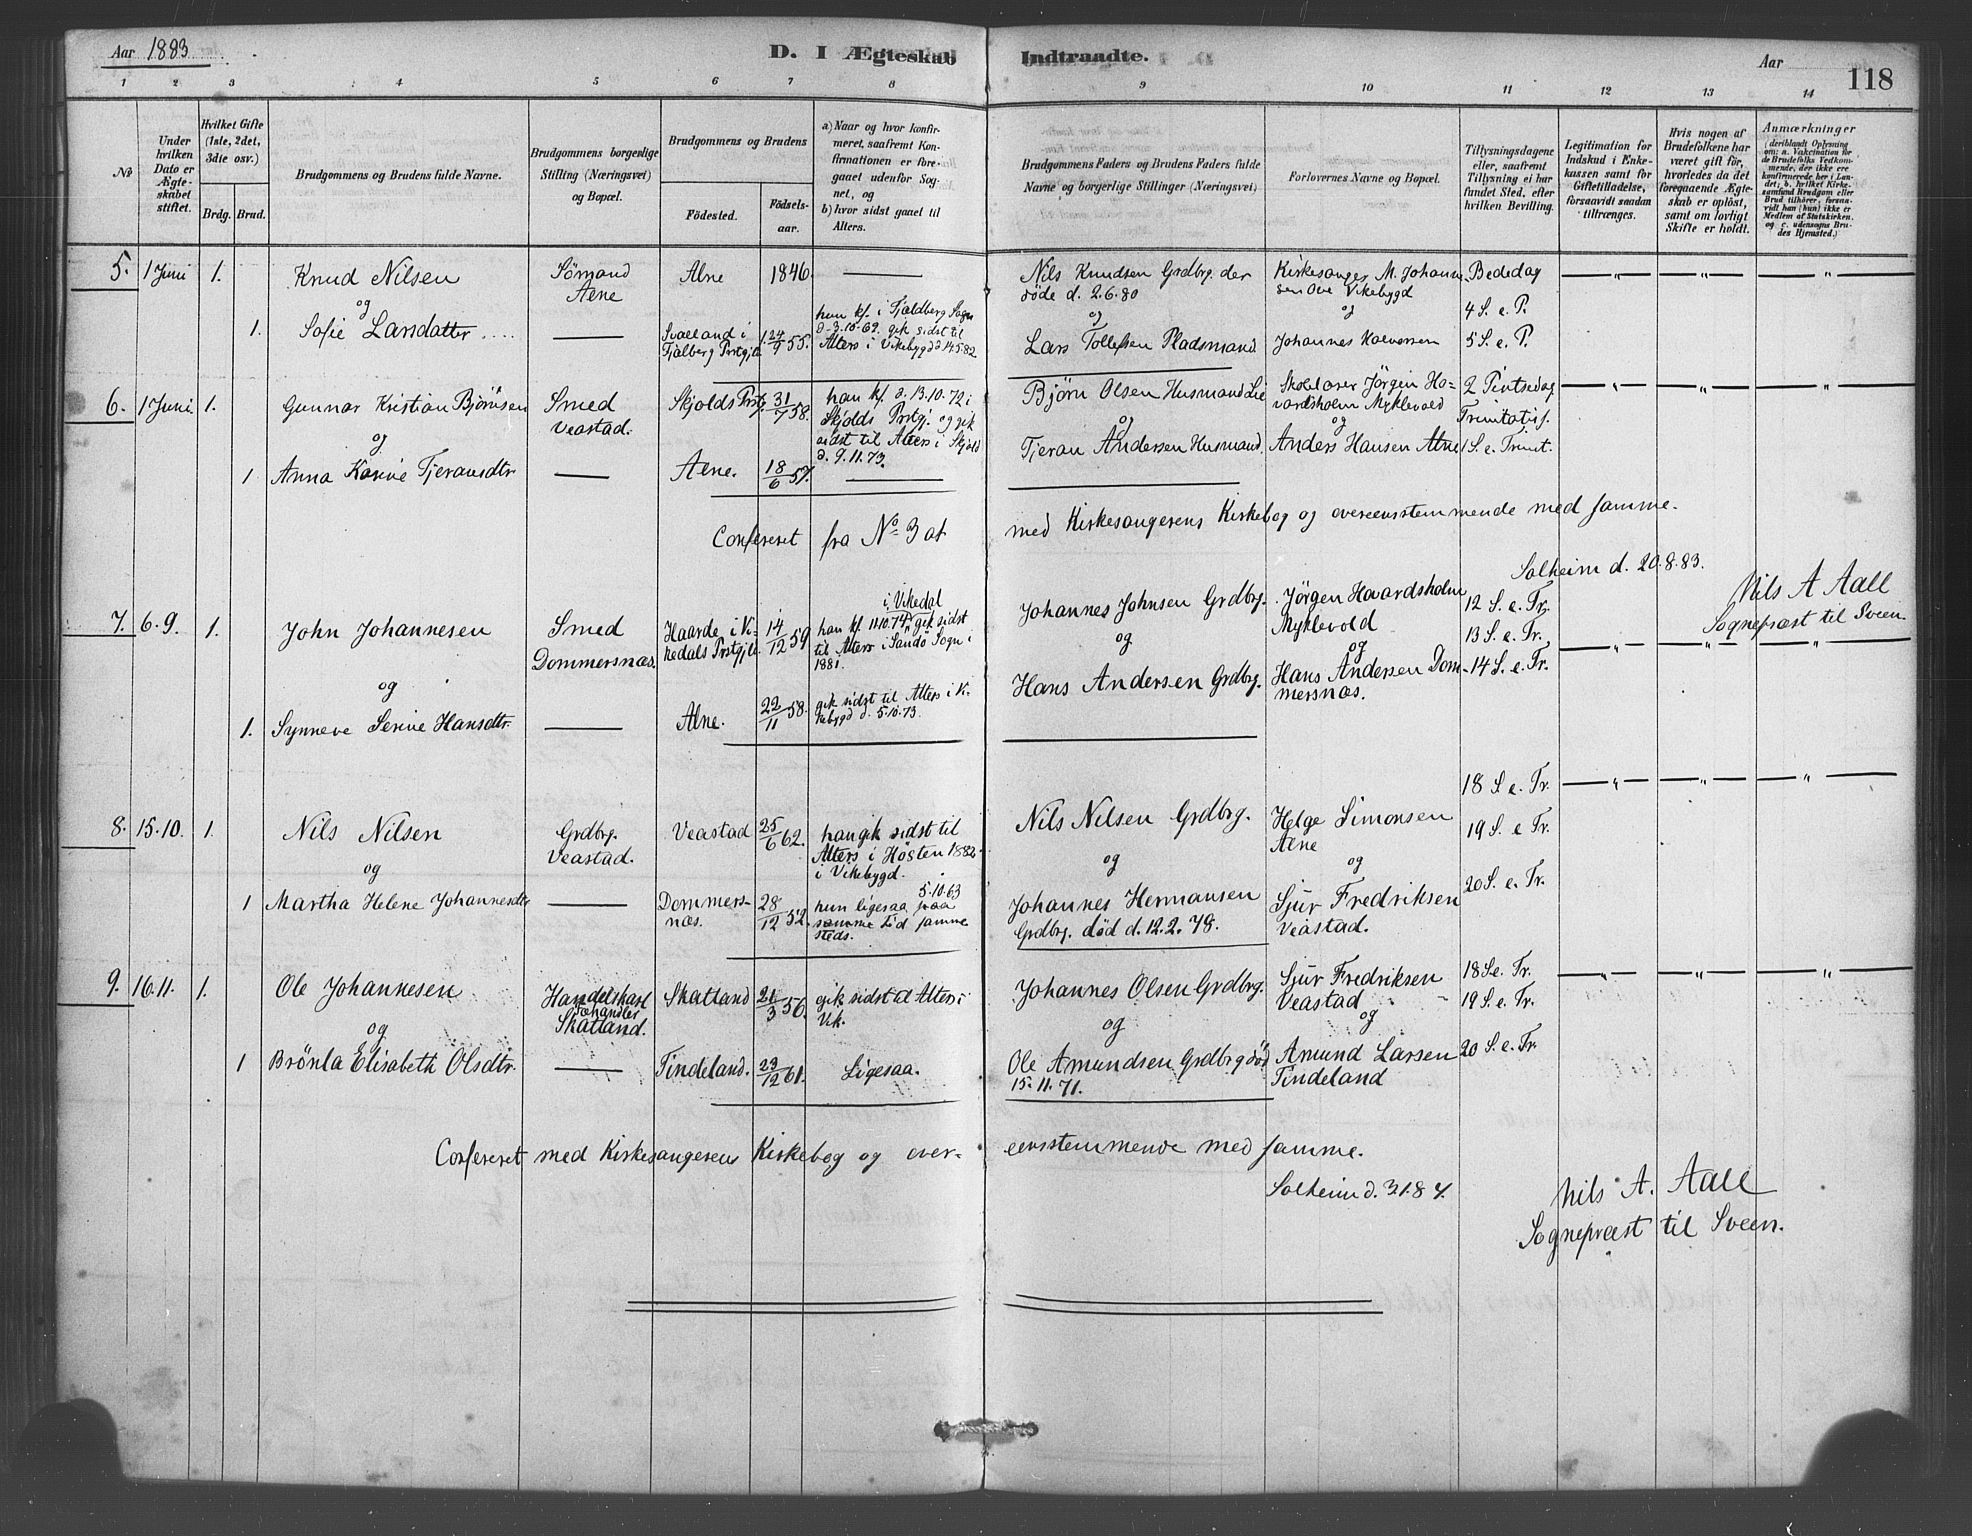 Aar 1883
D. I Ægteskab Indtraadte.
Aar
118
1 2 3 4 5 6 7 8 9 10 11 12 13 14
No
Under hvilken Dato er Ægteskabet stiftet.
Hvilket Gifte (1ste, 2det, 3die osv.)
Brdg. Brud.
Brudgommens og Brudens fulde Navne.
Brudgommens borgerlige Stilling (Næringsvei) og Bopæl.
Brudgommens og Brudens
Fødested.
Fødselsaar.
a) Naar og hvor konfirmeret, saafremt Konfirmationen er foregaaet udenfor Sognet, og
b) hvor sidst gaaet til Alters.
Brudgommens Faders og Brudens Faders fulde Navne og borgerlige Stillinger (Næringsvei)
Forlovernes Navne og Bopæl.
Tillysningsdagene eller, saafremt Tillysning ei har fundet Sted, efter hvilken Bevilling.
Legitimation for Indskud i Enkekassen samt for Giftetilladelse, forsaavidt saadan tiltrænges.
Hvis nogen af Brudefolkene har været gift før, hvorledes da det foregaaende Ægteskab er opløst, samt om lovligt Skifte er holdt.
Anmærkninger (deriblandt Oplysning om: a. Vakcination for de Brudefolks Vedkommende, der ikke ere konfirmerede her i Landet; b. hvilket Kirkesamfund Brudgom eller Brud tilhører, forsaavidt han (hun) ikke er Medlem af Statskirken, og c. udensogns Brudes Hjemsted.)
5. 1 Juni 1. Knud Nilsen
Sømand
Alne 1846.
Nils Knudsen Grdbrg. der
døde d. 2.6.80
Kirkesanger M. Johannesen Ove Vikebygd
Bededag
4 S. e. P.
5 S. e. P.
og
1. Sofie Larsdatter
Svalland i
Fjelberg Prstgjld
24/9 55.
hun kf. i Fjeldberg Sogn
d. 3.10.69. gik sidst til
Alters i Vikebygd d. 14.5.82
og
Lars Tollefsen Pladsmand.
og
Johannes Halvorsen
6. 1 Juni 1. Gunnar Kristian Bjørnsen
Smed
Veastad.
Skjolds Prstgj. 31/7 58.
han kf. d. 13.10.72 i
Skjolds Prstgj. og gik
sidst til Alters i Skjold
d. 9.11.73.
Bjørn Olsen Husmand Lie
Skolelærer Jörgen Hovardsholm Myklevold
2 Pintsedag
Trinitatisf.
1 S. e. Trinit.
og
1 Anna Karine Tjerandsdtr
Alne. 18/6 57.
og
Tjeran Andersen Husmand.
og
Anders Hansen Alne
Confereret fra No 3 at med Kirkesangerens Kirkebog og overeensstemmende med samme.
Solheim d. 20.8.83.
Nils A Aall
Sogneprest til Sveen.
7. 6.9. 1. John Johannesen
Smed
Dommersnæs.
Haarde i Vikedals Prstgjld 14/12 59
i Vikedal
han kf. 11.10.74 gik sidst
til Alters i Sandø Sogn i
1881.
Johannes Johnsen Grdbrg.
Jörgen Hovardsholm
Myklevold
12 S. e. Tr.
13 S. e. Tr.
14 S. e. Tr.
og
1. Synneve Serine Hansdtr.
Alne. 22/11 58.
gik sidst til Alters i Vikebygd d. 5.10.73.
og
Hans Andersen Grdbrg.
og
Hans Andersen Dommersnæs.
8. 15.10. 1. Nils Nilsen
Grdbrg.
Veastad.
Veastad 25/6 62.
han gik sidst til
Alters i Høsten 1882
i Vikebygd.
Nils Nilsen Grdbrg.
Helge Simonsen
Alne
18 S. e. Tr.
19 S. e. Tr.
20 S. e. Tr.
og
1 Martha Helene Johannesdtr
Dommersnæs.
28/12 52.
5.10.63
hun ligesaa paa
samme Tid samme
steds.
og
Johannes Hermansen
Grdbrg. død d. 12.2.78.
og
Sjur Fredriksen
Veastad.
9. 16.11. 1. Ole Johannesen
Handelskarl
Skatland.
Skatland 21/3 56.
gik sidst til Alters i
Vik.
Johannes Olsen Grdbrg.
Sjur Fredriksen
Veastad
18 S. e. Tr.
19 S. e. Tr.
20 S. e. Tr.
og
1 Brönla Elisabeth Olsdtr.
Tindeland. 23/12 61.
Ligesaa.
og
Ole Amundsen Grdbrg død
15.11.71.
og
Amund Larsen
Tindeland
Confereret med Kirkesangerens Kirkebog og overeensstemmende med samme.
Solheim d. 3.1.84.
Nils A. Aall
Sogneprest til Sveen.